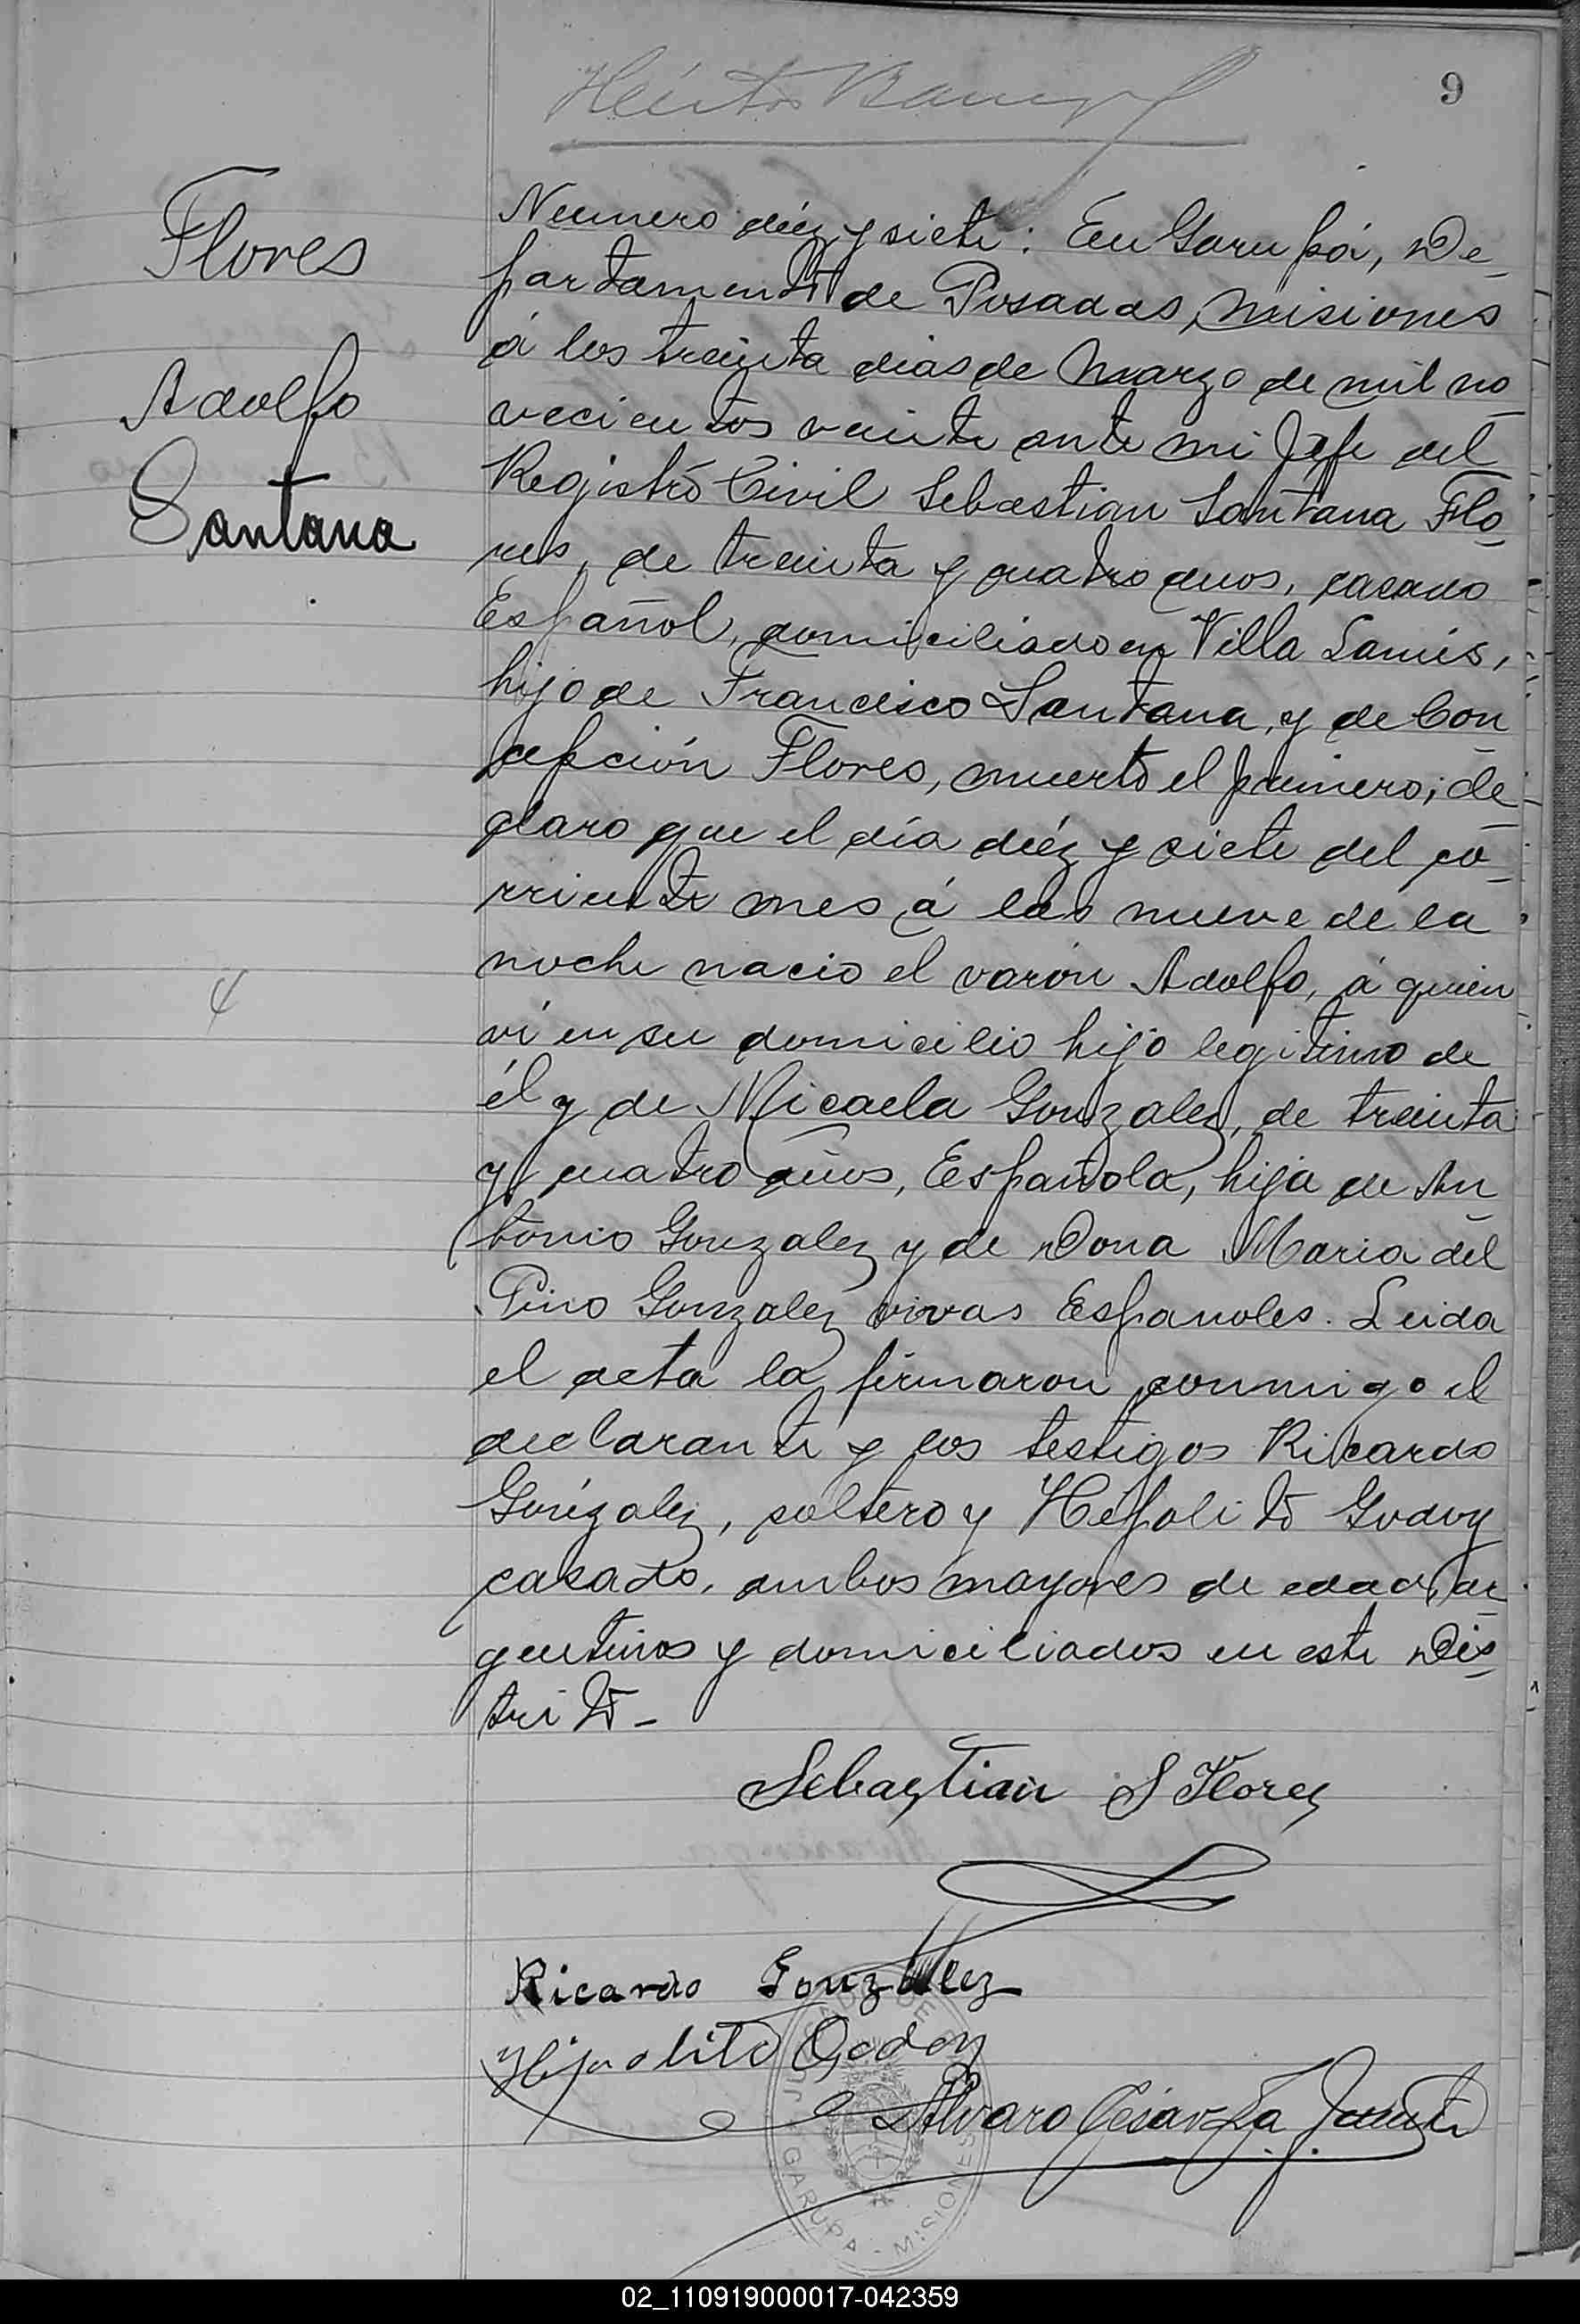 9
Flores
Adolfo
Santana
Numero diéz y siete: En Garupá, De-
partamento de Posadas, Misiones
á los treinta dias de Marzo de mil no-
vecientos veinte ante mi Jefe del
Registro Civil Sebastian Santana Flo-
res, de treinta y cuatro años, casado
Español, domiciliado en Villa Lanús,
hijo de Francisco Santana, y de Con-
cepción Flores, muerto el primero; de-
claro que el día diéz y siete del co-
rriente mes á las nueve de la
noche nació el varón Adolfo, á quien
ví en su domicilio hijo legitimo de
él y de Micaela Gonzalez, de treinta
y cuatro años, Española, hija de An-
tonio Gonzalez y de Dona Maria del
Pino Gonzalez vivas Espanoles. Leida
el acta la firmaron conmigo el
declarante y los testigos Ricardo
Gonzalez, soltero y Hipolito Godoy
casado, ambos mayores de edad, ar-
gentinos y domiciliados en este Dis-
trito-
Sebastian S Flores
Ricardo Gonzalez
Hipolito Godoy
Alvaro César La
GARUPA - MISIONES
02_110919000017-042359